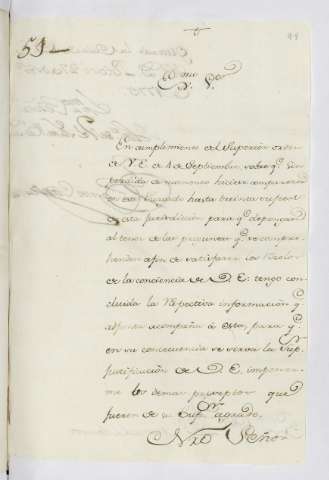 51
Exmo. Sor.
En cumplimiento del Superior orden
de V.E. de 4 de Septiembre, sobre qe. sin
perdida de momento hiciese comparecer
en este Juzgado hasta treinta
de esta jurisdiccion para qe. depongan
al tenor de las preguntas qe. se compre
handen afin de satisfacer los
de la conciencia de V. E.: tengo con
cluida la respectiva informacion qe.
adjunta acompaña à esta, para qe.
en su concecuencia se sirva la Supr.
Justificacion de V. E. imponer
me los demas preceptos que
fueren de su Supr. agrado.
Ntro Señor